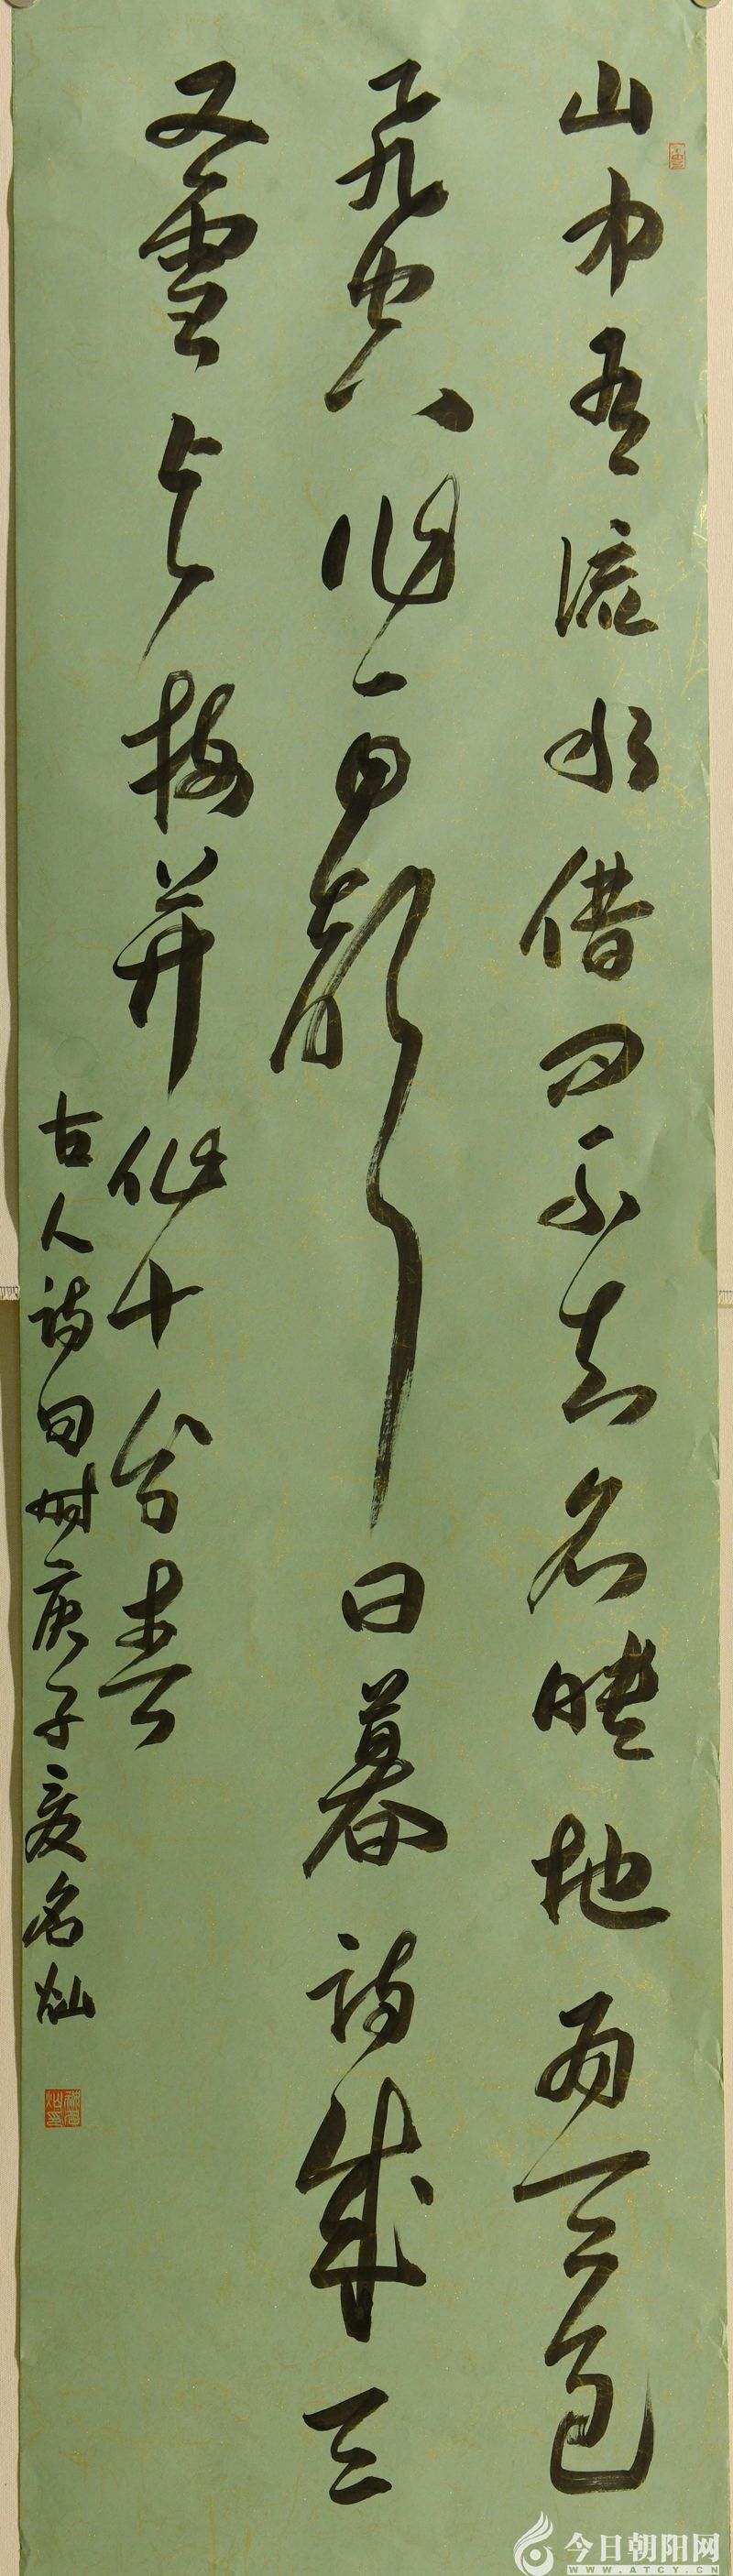 山中有流水借问不知名映地为天色
飞空作雨声日暮诗成天
又雪与梅并作十分春
古人诗句时庚子夏名灿
今日朝阳网
WWW.ATCY.CN